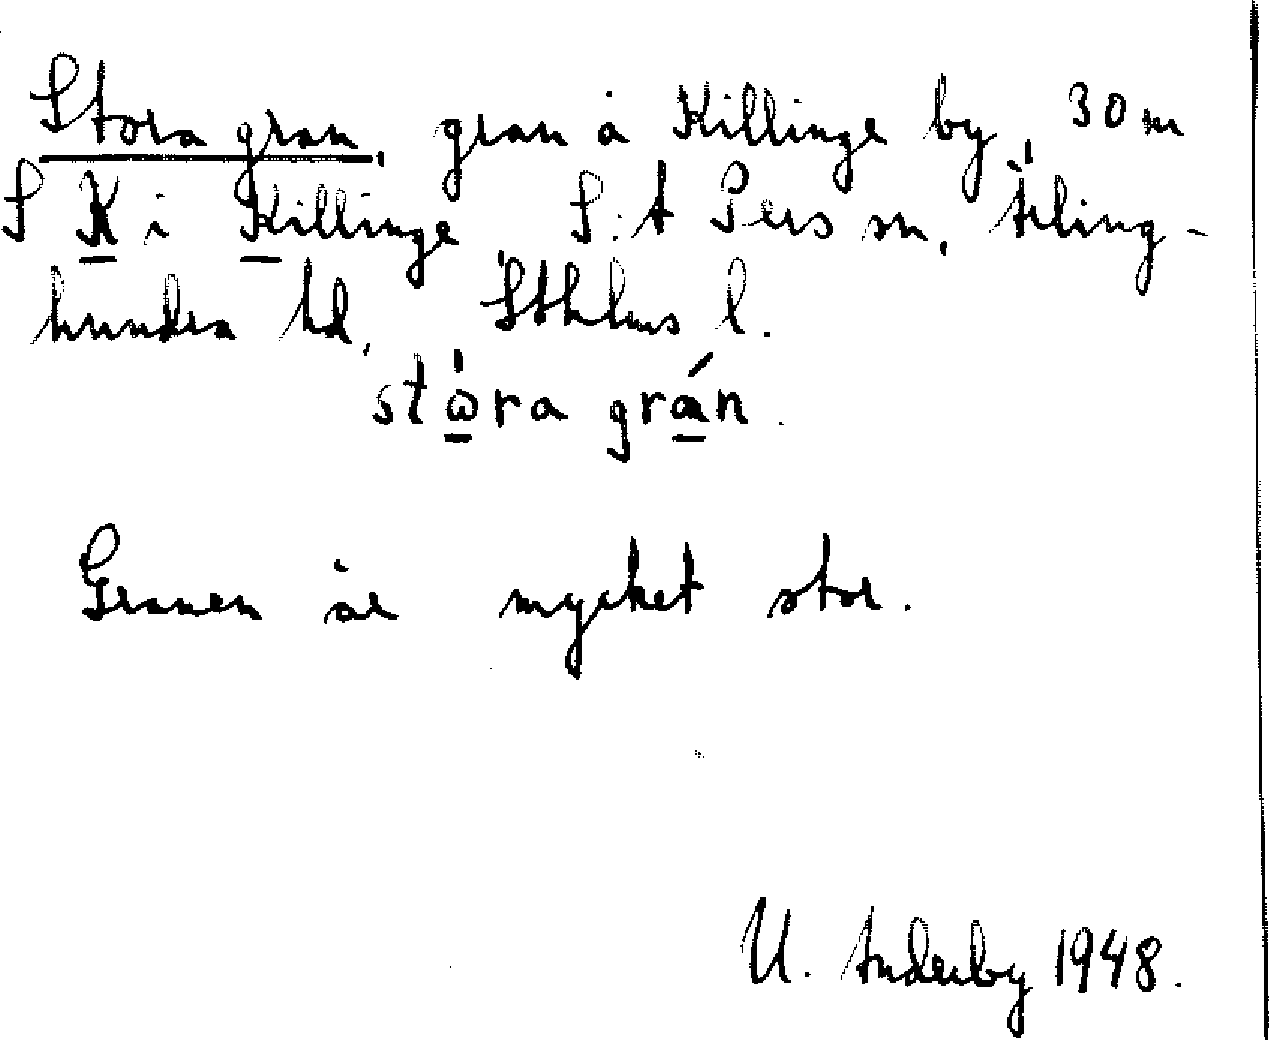 Stora gran, gran å Killinge by, 30 m
S K i Killinge, S:t Pers sn, Ärling-
hundra hd, Sthlms l.
stὼra grán.
Granen är mycket stor.
U. Anderby 1948.